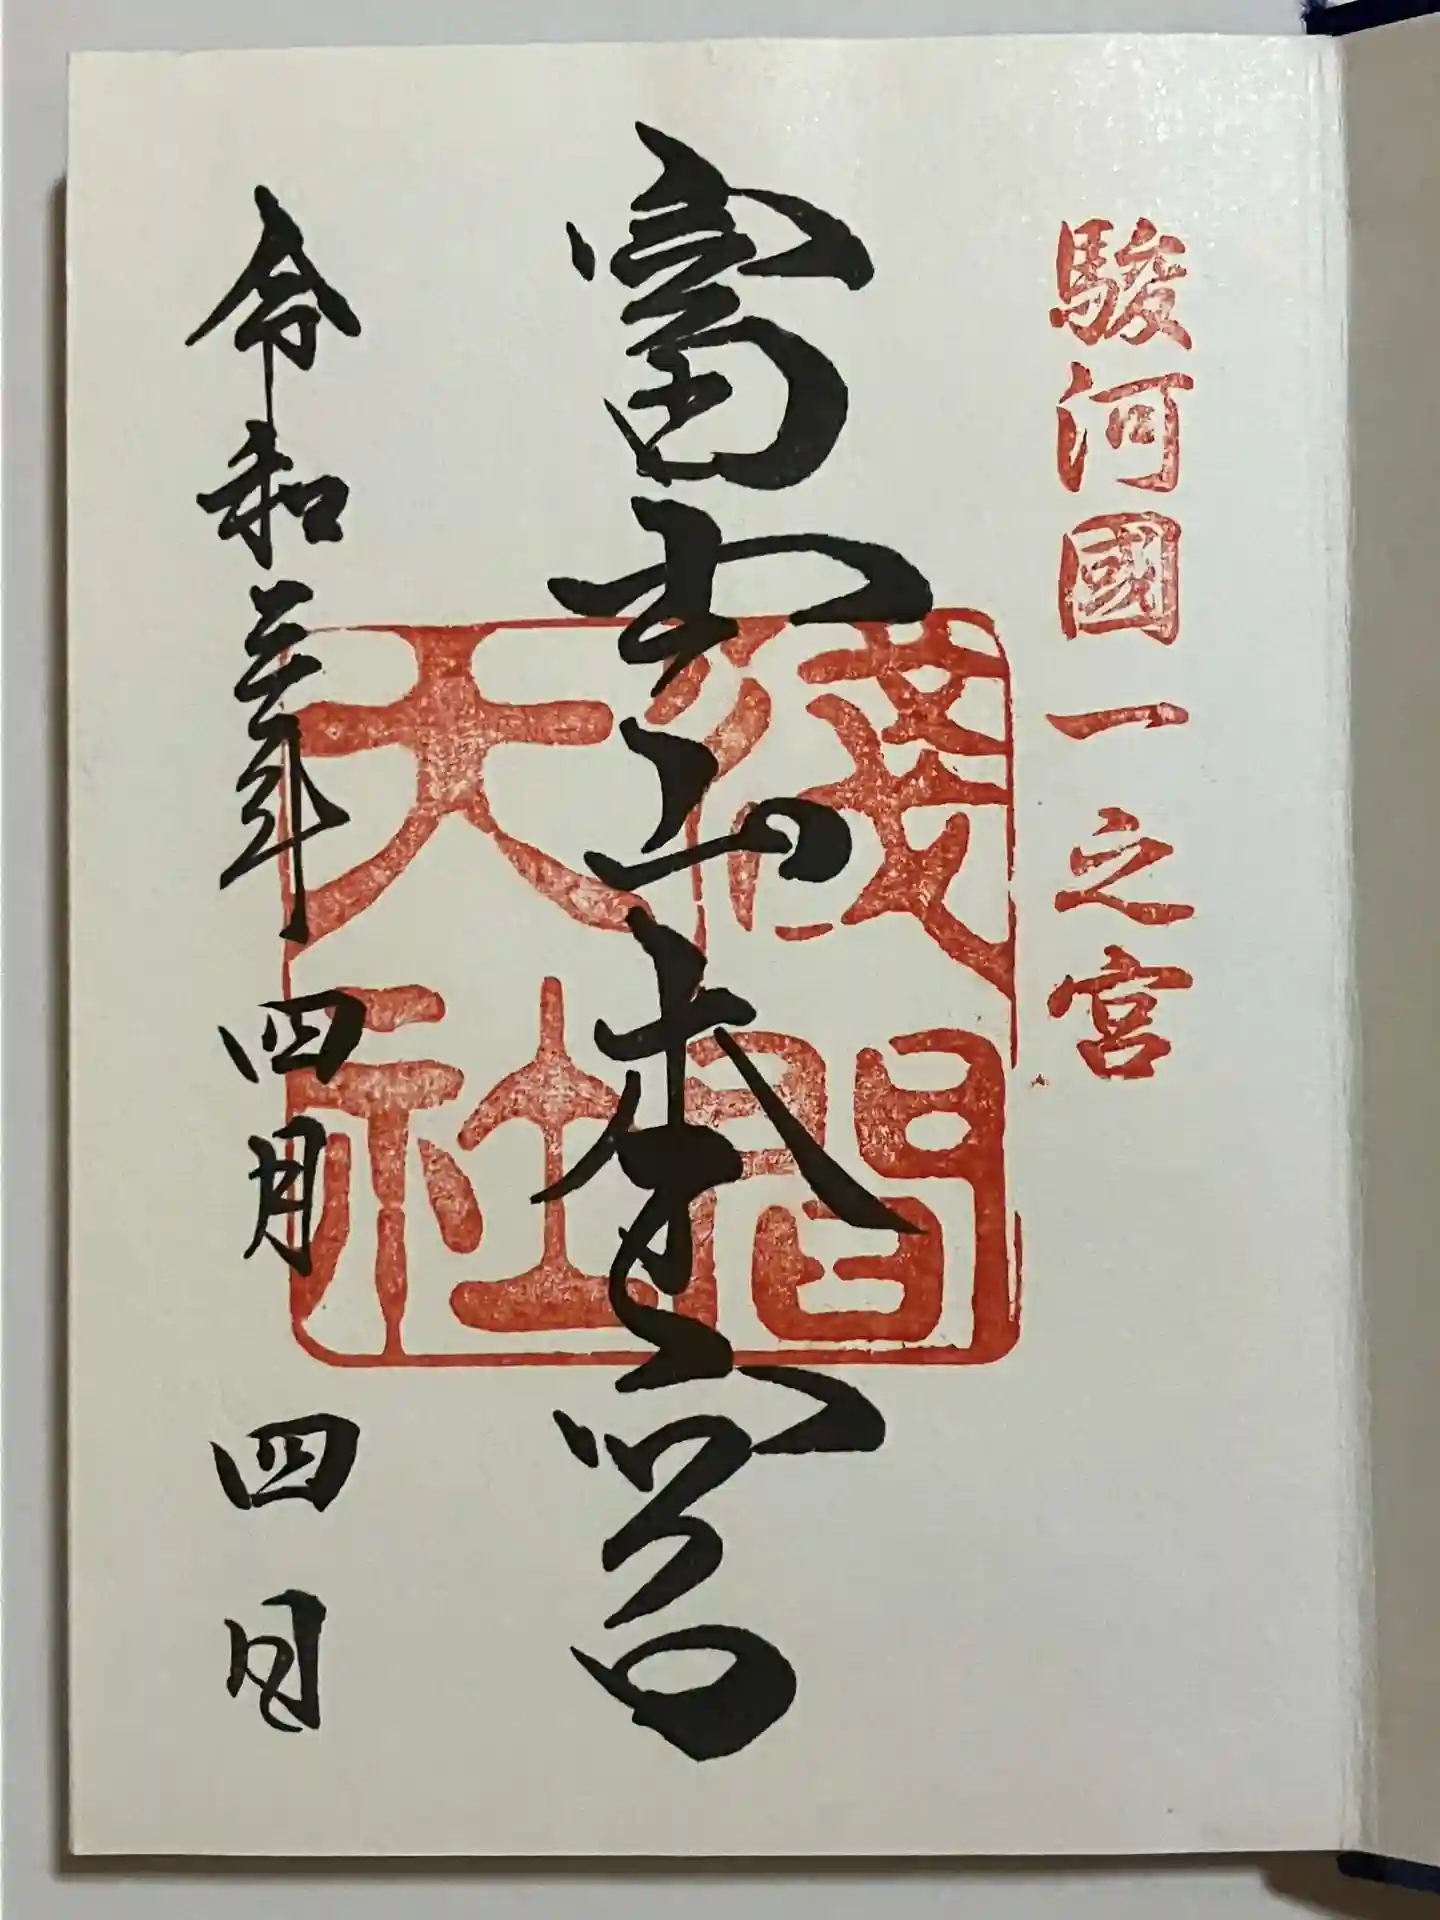 駿河國一之宮
富士山本宮
淺間大社
令和三年四月四日